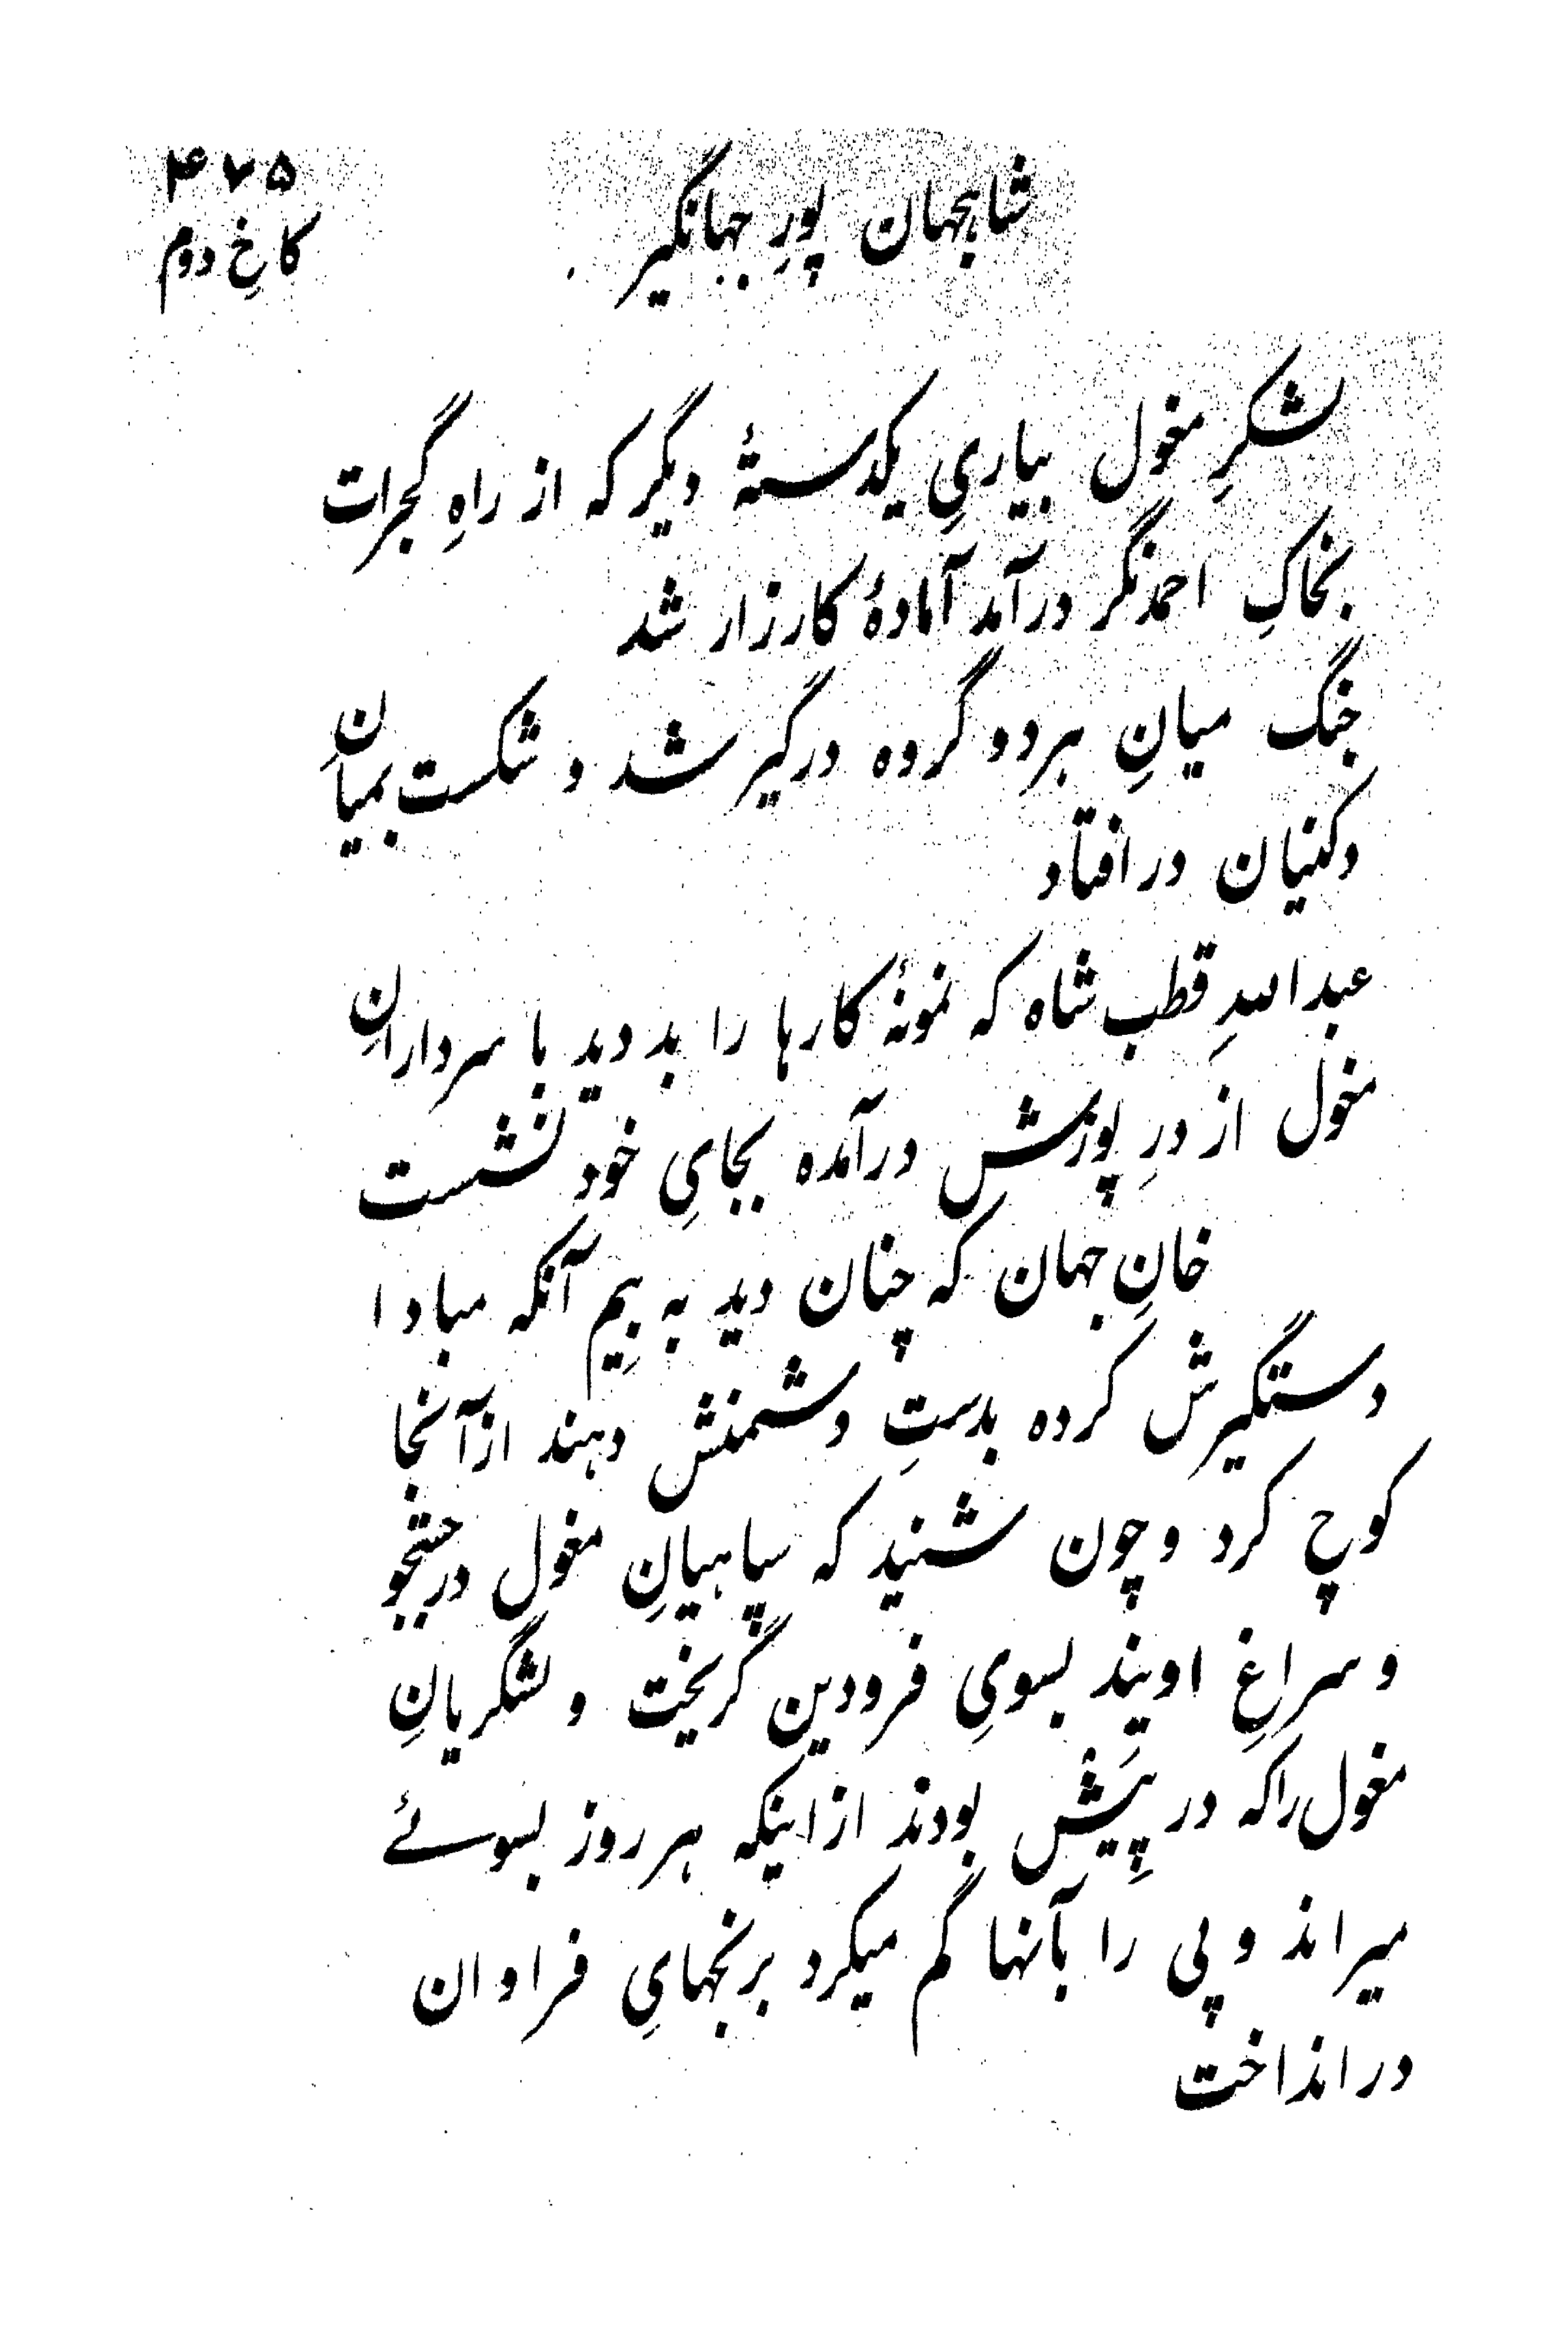 شاهجهان پورِ جهانگیر
۴۷۵
کاخِ دوم
لشکرِ مغول بیاریِ یکدستهٔ دیگر که از راهِ گجرات
بخاکِ احمدنگر درآمد آمادهٔ کارزار شد
جنگ میانِ هر دو گروه درگیر شد و شکست بمیانِ
دکنیان در افتاد
عبداللهِ قطب شاه که نمونهٔ کارها را بد دید با سردارانِ
مغول از درِ پوزش درآمده بجایِ خود نشست
خانِ جهان که چنان دید به بِیم آنکه مبادا
دستگیرش کرده بدستِ دشمنش دهند از آنجا
کوچ کرد و چون شنید که سپاهیانِ مغول در جستجو
و سراغِ اویند بسویِ فرودین گریخت و لشگریانِ
مغول را که در پِیَش بودند از اینکه هر روز بسوئے
میراند و پی را بآنها گم میکرد برنجهایِ فراوان
در انداخت